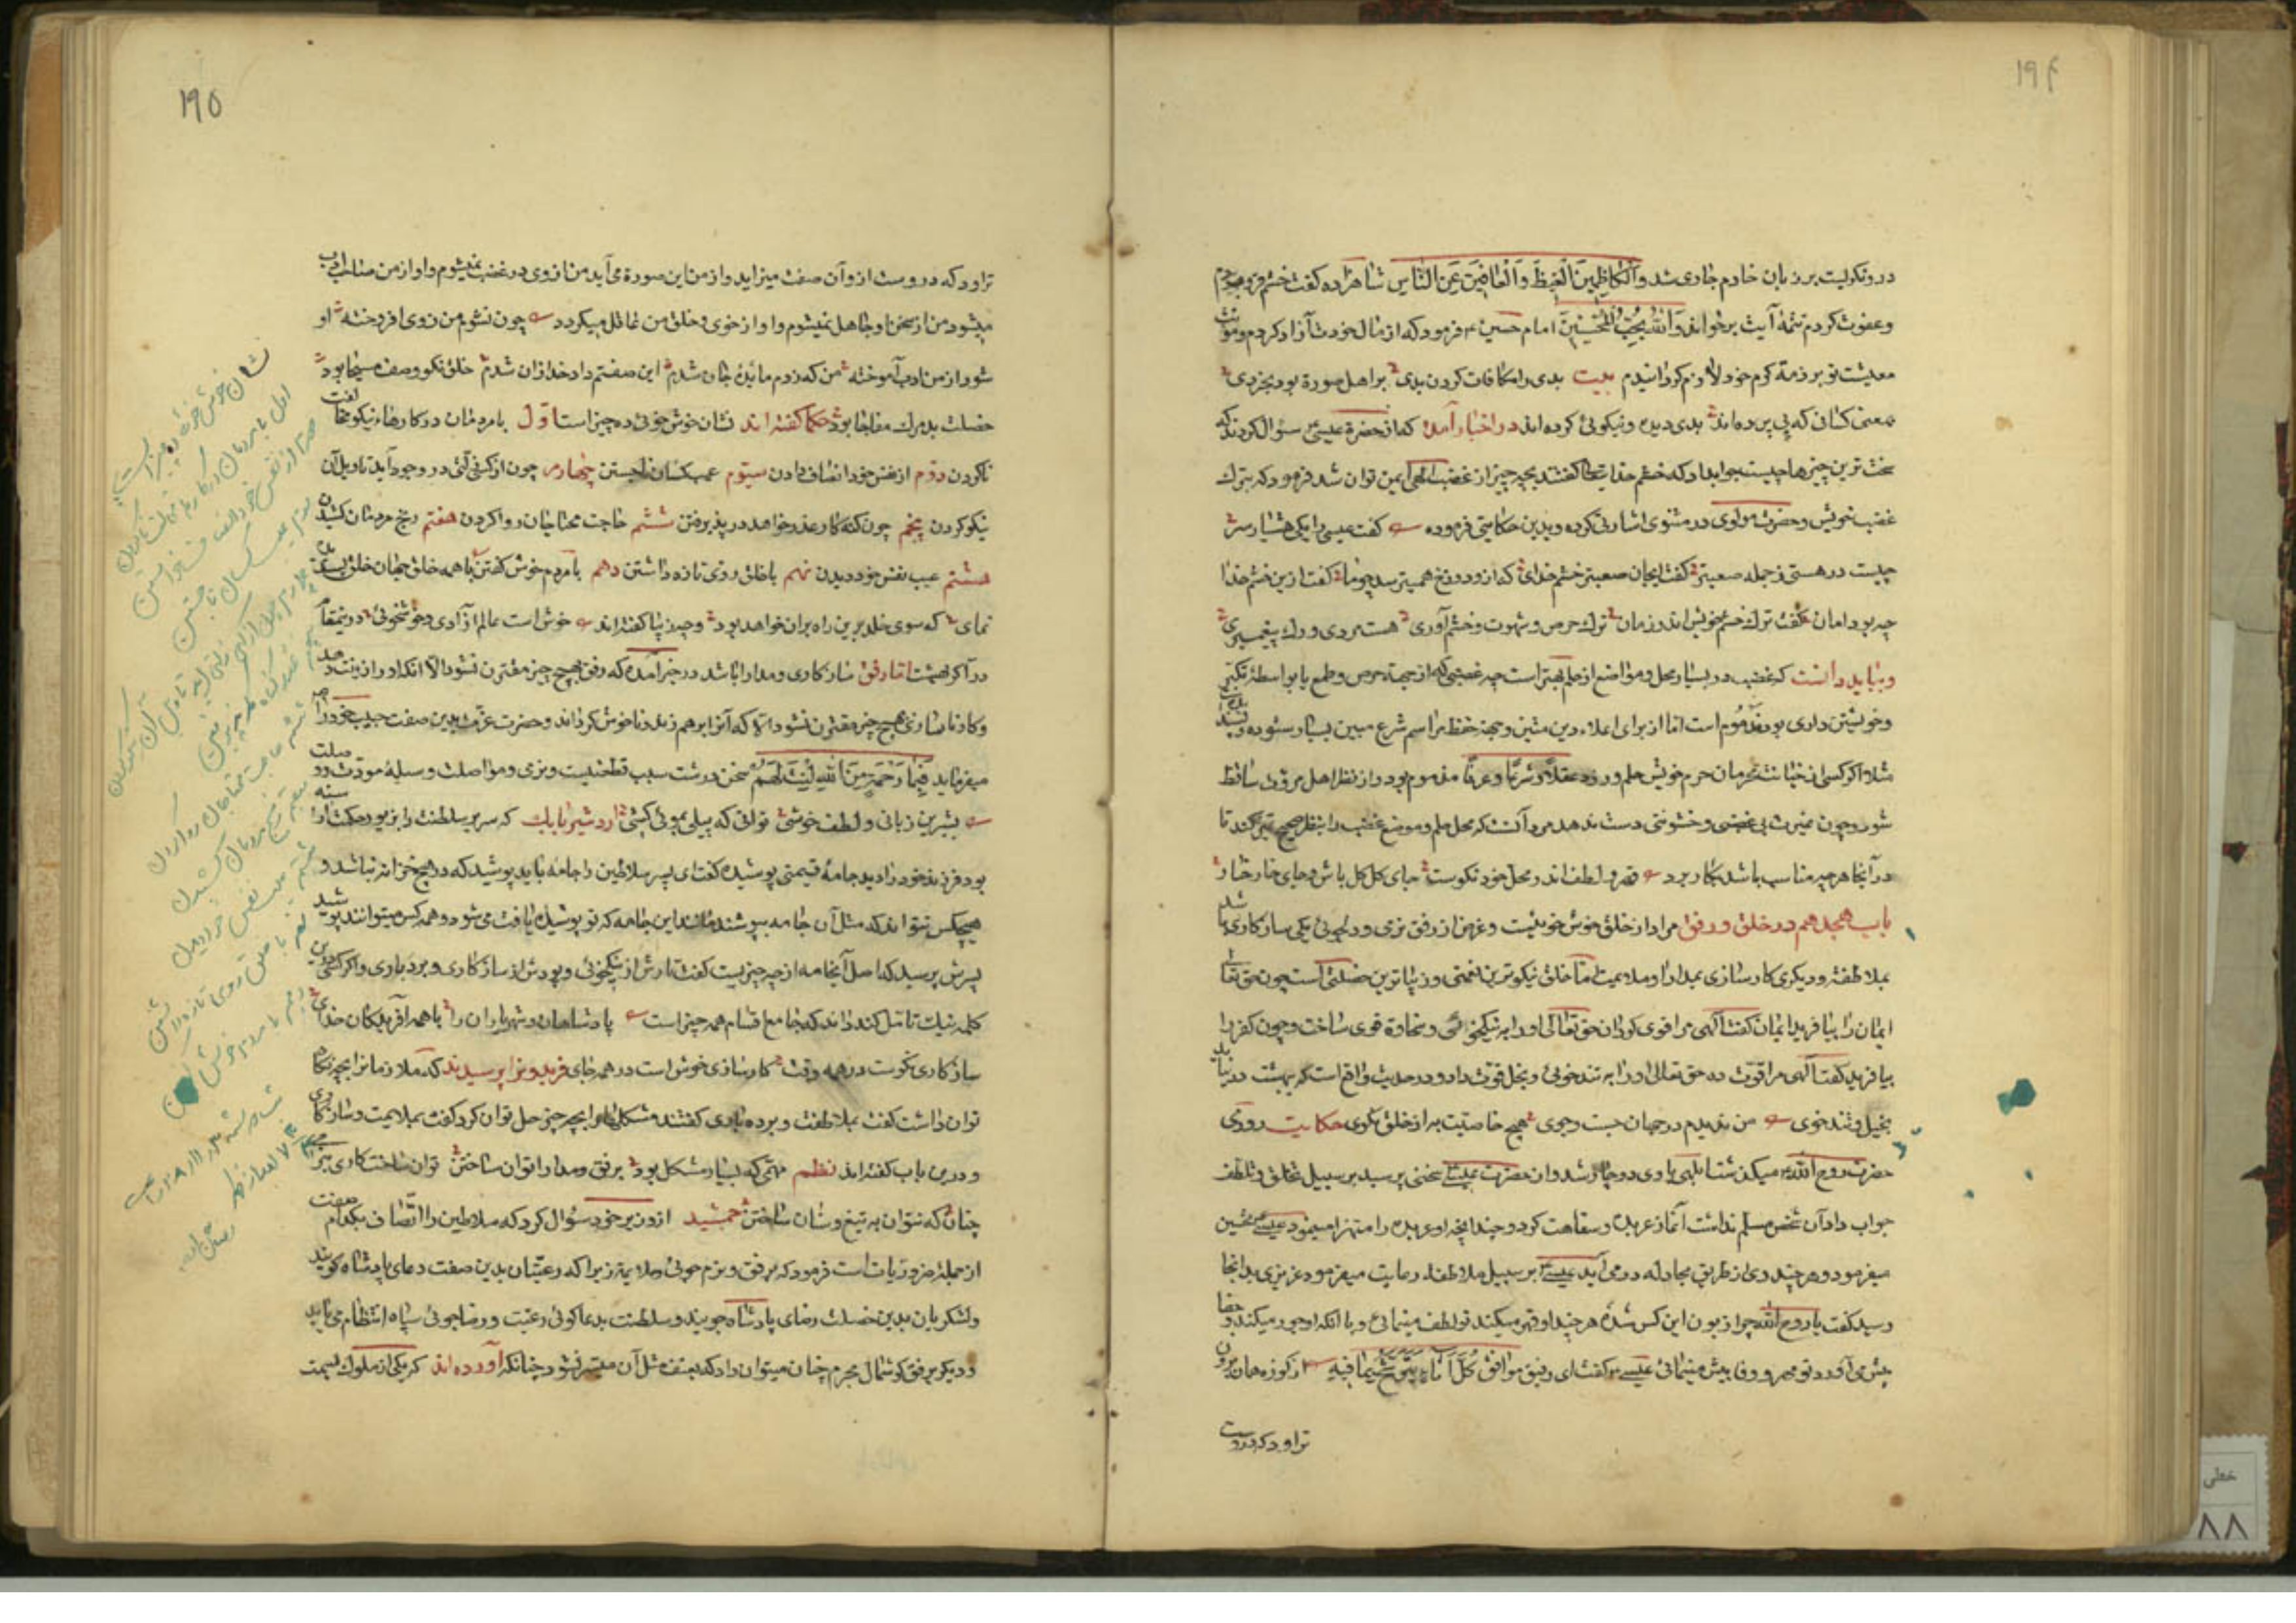 ۱۹۴
در و نکریست بر زبان خادم جاری شد وَالْكَاظِمِينَ الْغَيْظَ وَالْعَافِينَ عَنِ النَّاسِ شاهزاده کفت خشم فرو خوردم
وعفوت کردم تتمهٔ آیت برخواند وَاللَّهُ يُحِبُّ الْمُحْسِنِينَ امام حسین ع فرمود که از مال خودت آزاد کردم و مونت
معیشت تو بر ذمهٔ کرم خود لازم کردانیدم بیت بدی را مکافات کردن بدی بر اهل صورة بود بخردی
بمعنی کسانی که پی برده اند بدی دیده و نیکوئی کرده اند در اخبار آمده که از حضرة عیسی سؤال کردند که
سخت ترین چیزها چیست جواب داد که خشم خدایتعالی کفتند بچه چیز از غضب الهی ایمن توان شد فرمود که بترک
غضب خویش وحضرت مولوی در مثنوی اشارتی کرده وبدین حکایتی فرموده کفت عیسی را یکی هشیار سر
چیست در هستی ز جمله صعبتر کفت ای جان صعبتر خشم خدای که از و دوزخ همیترسد چو ما کفت ازین خشم خدا
چه بود امان کفت ترک خشم خویش اندر زمان ترک حرص و شهوت وخشم آوری هست مردی و رک پیغمبری
وبباید دانست که غضب در بسیار محل و مواضع از حلم بهتر است چه غضبی که از جهة حرص وطمع یا بواسطهٔ تکبر
وخویشتن داری بود مذموم است اما از برای اعلاء دین متین و جهة حفظ مراسم شرع مبین بسیار ستوده و پسندیده
مثلا اکر کسی از خیانت محرمان حرم خویش حلم ورزد عقلاً وشرعاً وعرفاً مذموم بود و از نظر اهل مروت ساقط
شود وچون غیرت بی غضبی وخشونتی دست ندهد مرد آنست که محل حلم وموضع غضب را بنظر صحیح تمیز کند تا
در آنجا هرچه مناسب باشد بکار برد قهر و لطف اندر محل خود نکوست جای کل کل باش وجای خار خار
باب هجدهم در خلق و رفق مراد از خلق خوش خوییست وغرض از رفق نرمی و دلجوئی یکی سازکاری باشد
بملاطفت ودیکری کارسازی بمدارا وملایمت اما خلق نیکوترین نعمتی وزیباترین خصلتی است چون حق تعالی
ایمان را بیافرید ایمان کفت الهی مرا قوی کردان حق تعالی او را به نیکخوئی وسخاوة قوی ساخت وچون کفر را
بیافرید کفت الهی مرا قوت ده حق تعالی او را به تندخوئی و بخل قوت داد ودر حدیث واقع است که بهشت در نیاید
بخیل وتندخوی من ندیدم در جهان جست وجوی هیچ خاصیت به از خلق نکوی حکایت روزی
حضرت روح الله میکذشت ابلهی با وی دوچار شد و از حضرت عیسی سخنی پرسید بر سبیل تخلق وتلطف
جواب داد آن شخص مسلم نداشت آغاز عربده وسفاهت کرد وچندانچه او عربده را متهزا مینمود عیسی تحسین
میفرمود وهر چند وی از طریق مجادله در می آید عیسی بر سبیل ملاطفه رعایت میفرمود عزیزی بدانجا
رسید کفت یا روح الله چرا زبون این کس شدهٔ هر چند او قهر میکند تو لطف مینمائی و با آنکه او جور میکند وجفا
پیش می آورد تو مهر و وفا بیش مینمائی عیسی کفت ای رفیق موافق كُلُّ إِنَاءٍ يَتَرَشَّحُ بِمَا فِيهِ از کوزه همان برون
تراود که دروست
۱۹۵
تراود که دروست از و آن صفت میزاید و از من این صورة می آید من از وی در غضب نمیشوم و او از من صاحب ادب
میشود من از سخن او جاهل نمیشوم و او از خوی وخلق من عاقل میکردد چون نشوم من ز وی افروخته او
شود از من ادب آموخته من که ز دم مایدهٔ جان شدم این صفتم داد خدا زان شدم خلق نکو وصف مسیحا بود
خصلت بد مرک مفاجا بود حکما کفته اند نشان خوش خوئی ده چیز است اوّل با مردمان در کارهاء نیکو مخالفت
ناکردن دوّم از نفس خود انصاف دادن سیّوم عیب کسان ناجستن چهارم چون از کسی زلتی در وجود آید تاویل آن
نیکو کردن پنجم چون کنه کار عذر خواهد در پذیرفتن ششم حاجت محتاجان روا کردن هفتم رنج مردمان کشیدن
هشتم عیب نفس خود دیدن نهم با خلق روی تازه داشتن دهم با مردم خوش کفتن با همه خلق جهان خلق پسندیده
نمای که سوی خلد برین راه بران خواهد بود وچه زیبا کفته اند خوش است عالم آزادی وخوشخوئی در نیمقام
در آ کر بهشت اما رفق سازکاری ومدارا باشد در خبر آمده که رفق بهیچ چیز مقترن نشود الا آنکه او را زینت دهد
وکار ناسازی بهیچ چیز مقترن نشود الا که آنرا برهم زند و ناخوش کرداند وحضرت عزت بدین صفت حبیب خود را
میفرماید فَبِمَا رَحْمَةٍ مِنَ اللَّهِ لِنْتَ لَهُمْ سخن درشت سبب قطعیت ونرمی ومواصلت وسیلهٔ مودت و وصلت
بشیرین زبانی و لطف خوشی توانی که پیلی بموئی کشی اردشیر بابک که سریر سلطنت را بزیور حکمت آراسته
بود فرزند خود را دید جامهٔ قیمتی پوشیده کفت ای پسر سلاطین را جامه باید پوشید که در هیچ خزانه نباشد و
هیچکس نتواند که مثل آن جامه بپوشد مانند این جامه که تو پوشیدهٔ یافت می شود وهمه کس میتوانند پوشید
پسرش پرسید که اصل آنجامه از چه چیز است کفت تارش از نیکخوئی وپودش از سازکاری وبردباری واکر کسی درین
کلمه نیک تامل کند داند که جامع اقسام همه چیز است پادشاهان وشهریاران را با همه آفریدکان خدای
سازکاری نکوست در همه وقت کارسازی خوش است در همه جای فریدونرا پرسیدند که ملازمانرا بچه نکاه
توان داشت کفت بملاطفت و بردباری کفتند مشکلها را بچه چیز حل توان کرد کفت بملایمت وسازکاری
و درین باب کفته اند نظم مهمی که بسیار مشکل بود برفق ومدارا توان ساختن توان ساخت کاری به نرمی
چنان که نتوان به تیغ وسنان ساختن جمشید از وزیر خود سؤال کرد که سلاطین را اتصاف بکدام صفت
از جمله ضروریات است فرمود که برفق ونرم جوئی وملایمة زیرا که رعیتان بدین صفت دعای پادشاه کویند
ولشکریان بدین خصلت رضای پادشاه جویند وسلطنت بدعاکوئی رعیت ورضاجوئی سپاه انتظام می یابد
ودیکر برفق کوشمال مجرم چنان میتوان داد که بعنف مثل آن میسر نشود چنانکه آورده اند که یکی از ملوک بسمت
نشان خوش خوئی ده چیز است
اول با مردمان در کارهای نیکو مخالفت ناکردن
سوم عیب کسان ناجستن
ششم حاجت محتاجان روا کردن
هفتم رنج مردمان کشیدن
هشتم عیب نفس خود دیدن
نهم با خلق روی تازه داشتن
دهم با مردم خوش کفتن
خطی
۸۸